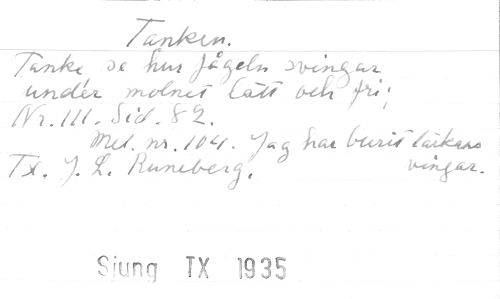 Tanken.
Tanke, se hur fågeln svingar
under molnet lätt och fri;
Nr. 111. Sid. 82.
Mel. nr. 104. Jag har burit lärkans
vingar.
Tx. J. L. Runeberg.
Sjung TX 1935